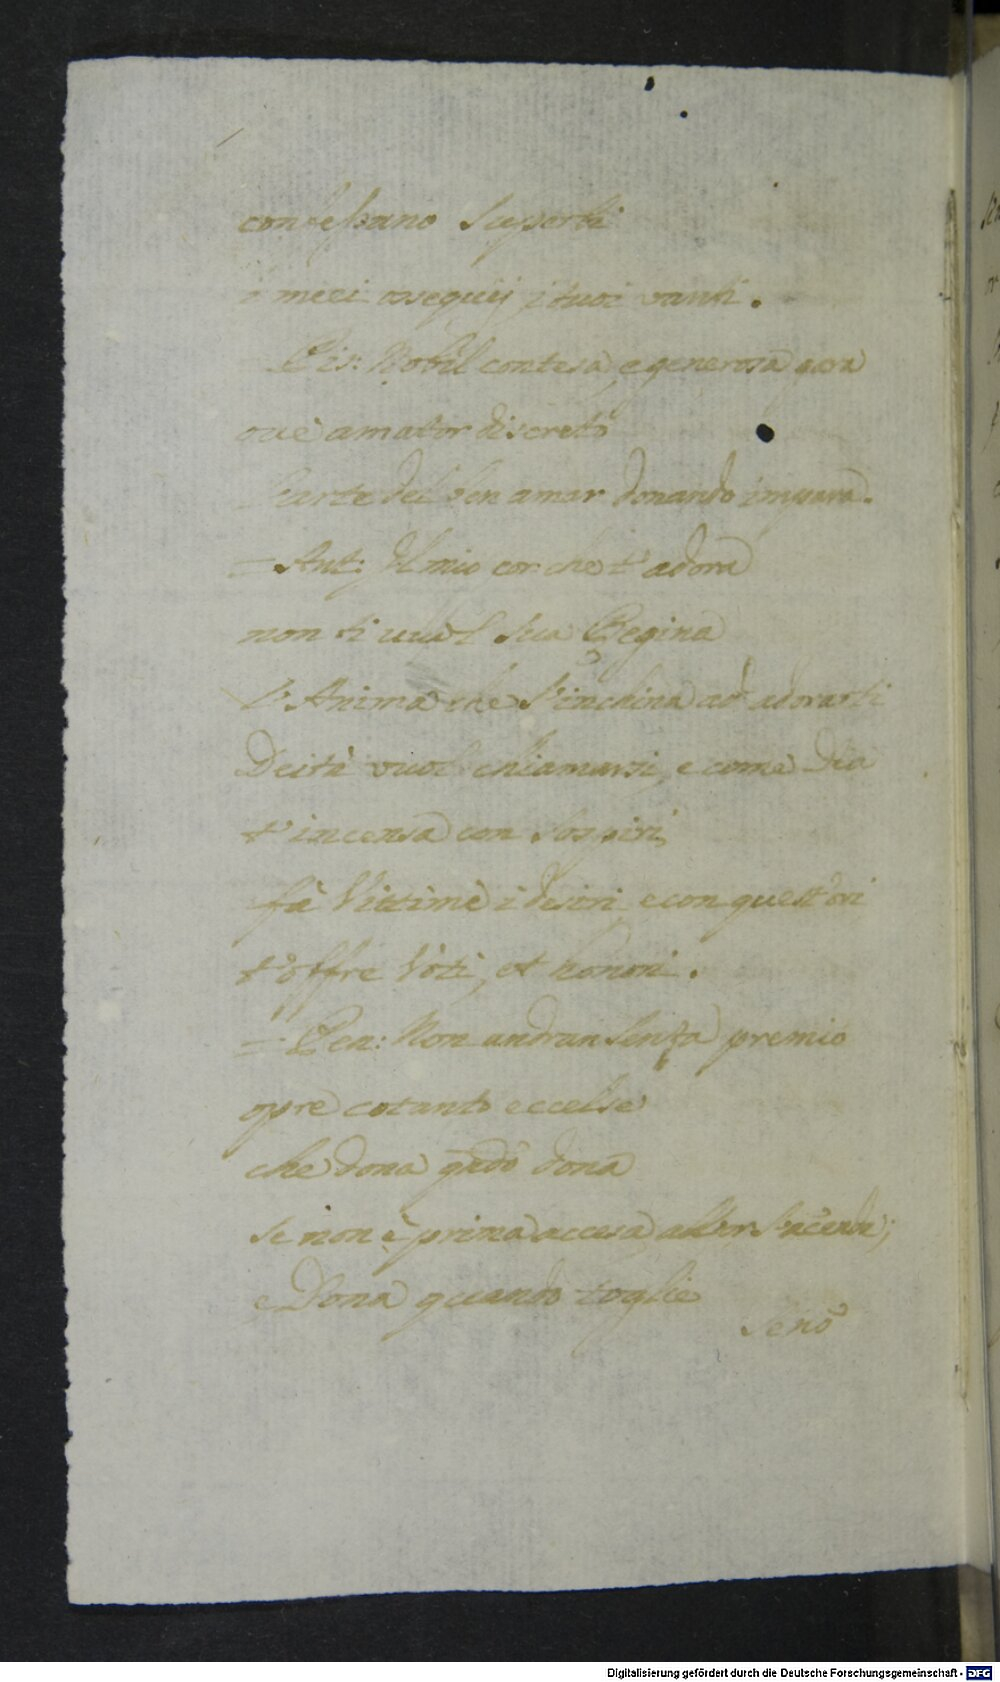 confessano superbi
i miei ossequij i tuoi vanti.
Cis: Nobil contesa, e generosa gara
ove amator discreto
l'arte del ben amar donando impara.
= Ant: Il mio cor che t'adora
non ti vuol sua Regina
L'Anima che s'inchina ad adorarti
Deità vuol chiamarsi, e come Dea
t'incensa con sospiri,
fà Vittime i desiri, e con quest'ori
t'offre Voti, et honori.
= Len: Non andran senza premio
opre cotanto eccelse
che dona qndo dona
se non è prima accesa, allor s'accende;
e Dona quando toglie
se nò
Digitalisierung gefördert durch die Deutsche Forschungsgemeinschaft - DFG